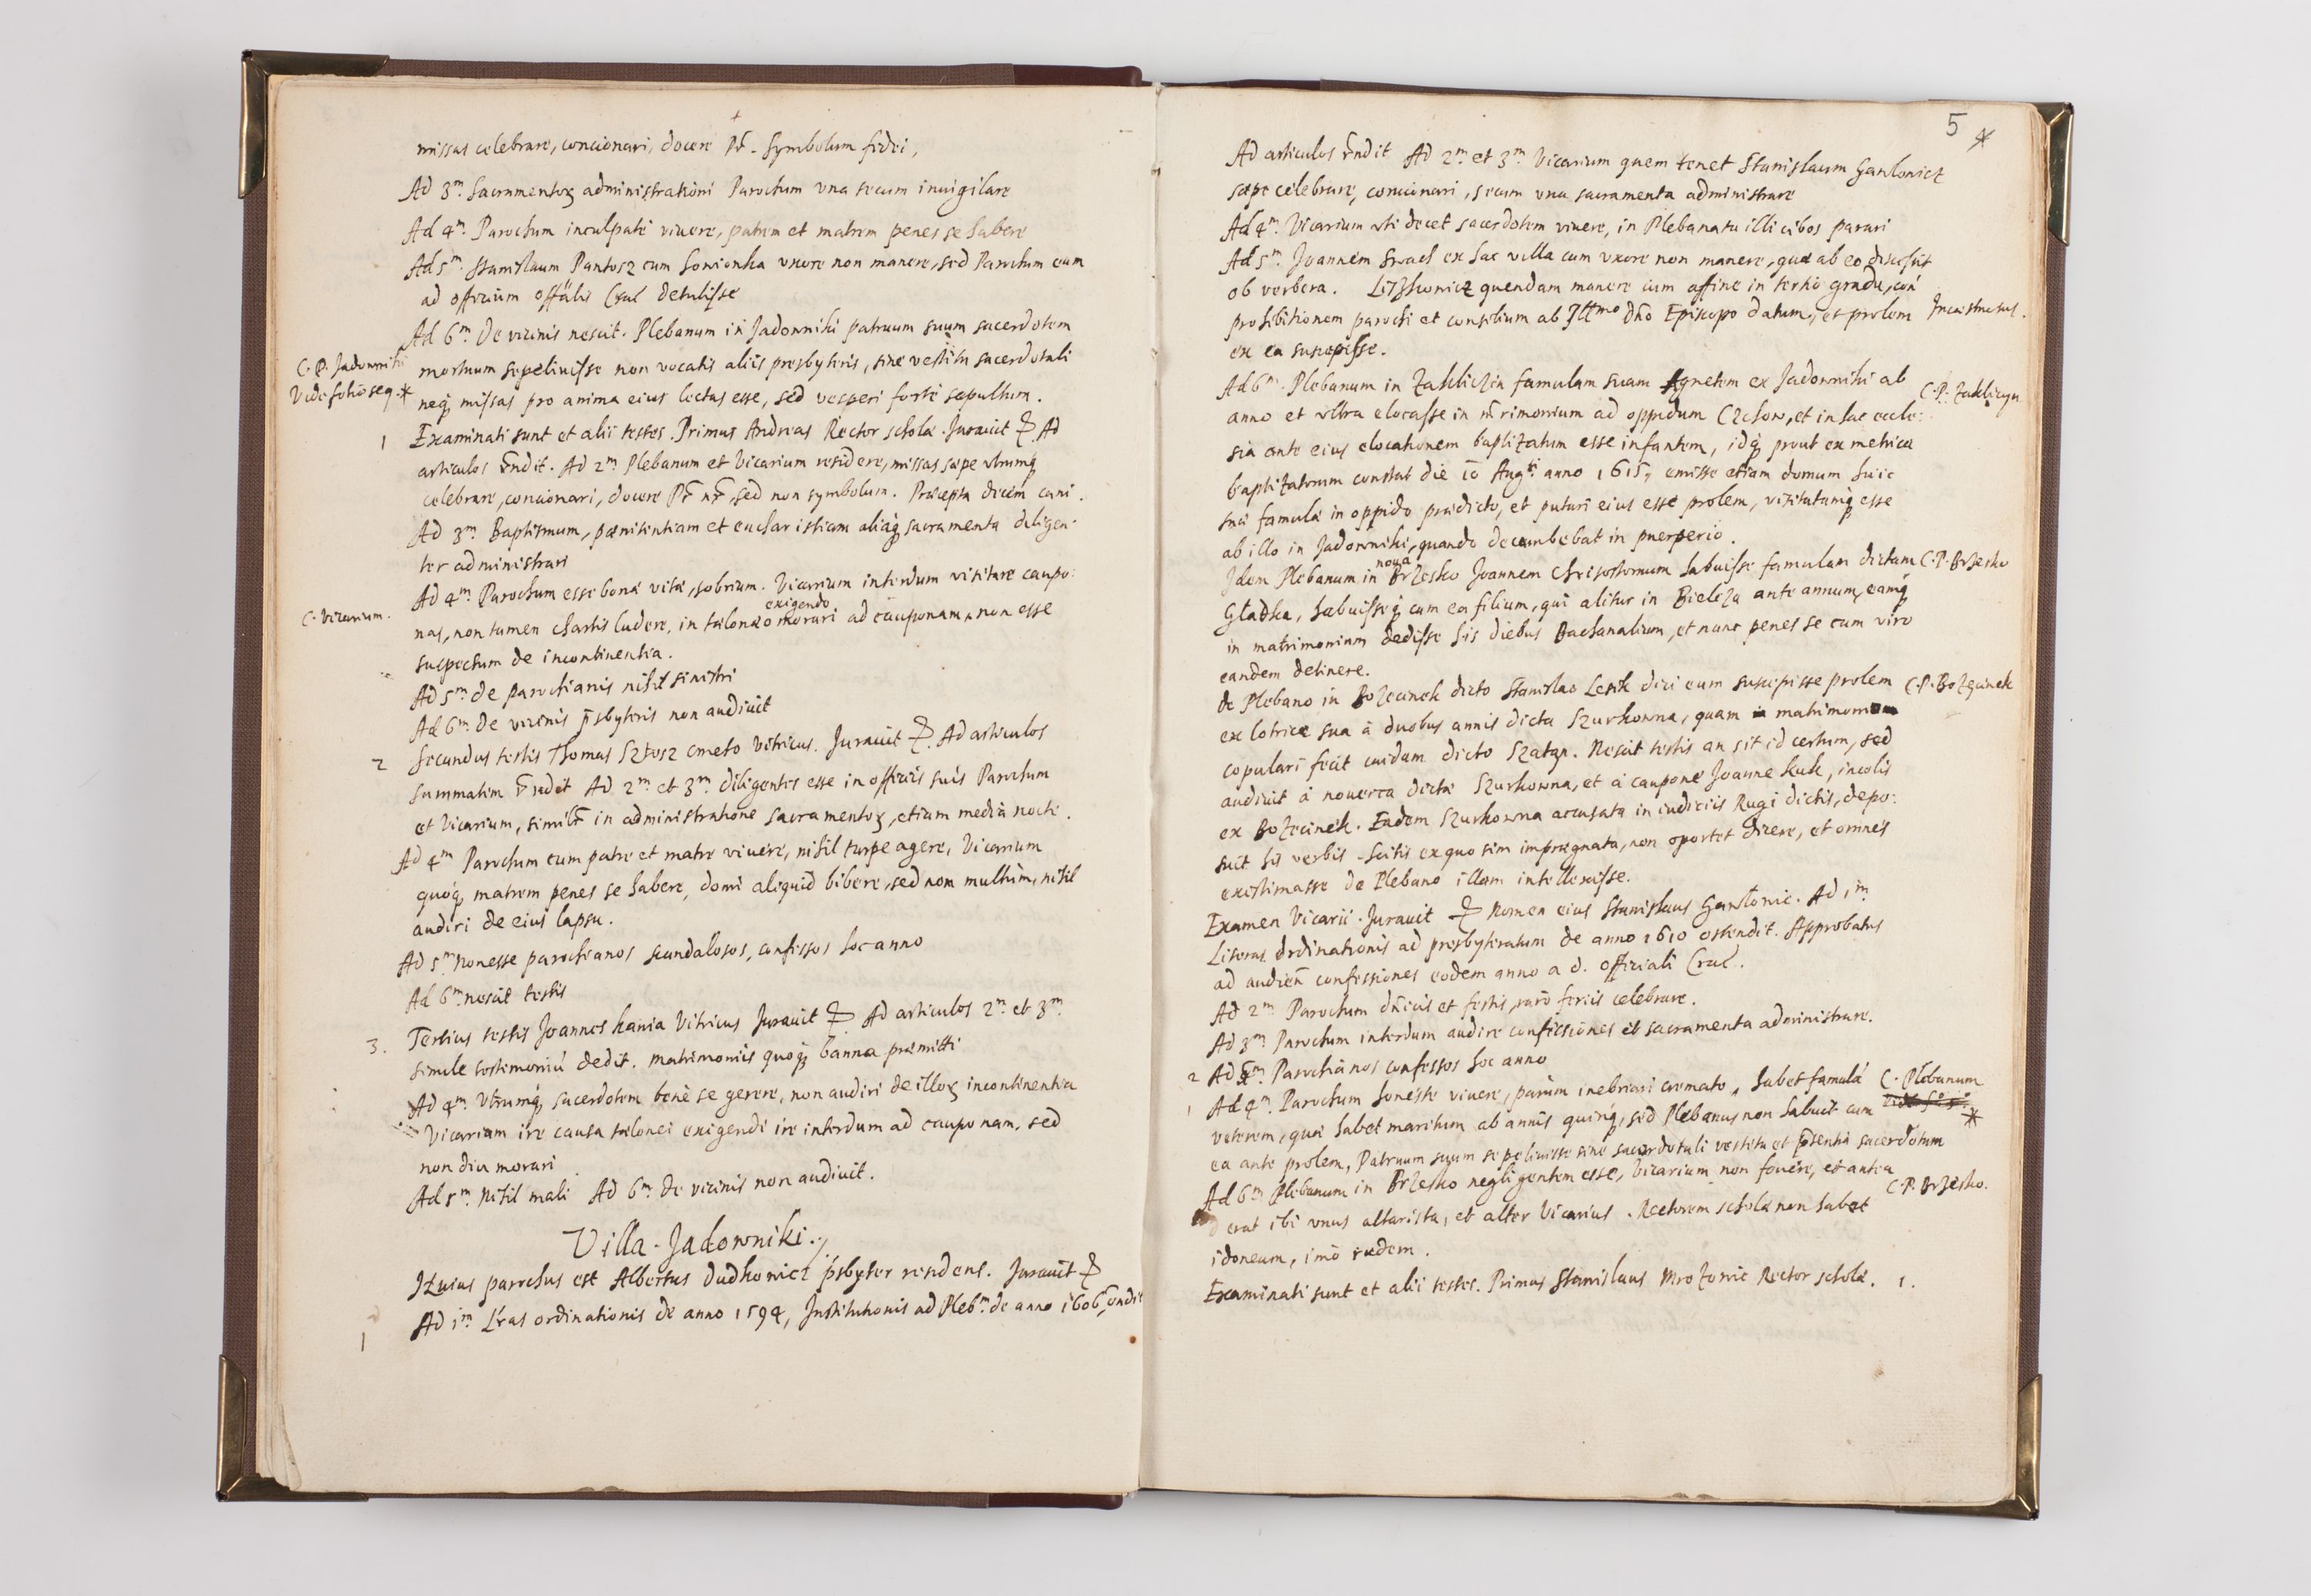 missas celebrare, concionari, docere Pr̃. Symbolum fidei,
Ad 3m. Sacramentoꝝ administrationi Parochum vna secum inuigilare
Ad 4m. Parochum inculpatè viuere, patrem et matrem penes se habere
Ad 5m. Stanislaum Pantosz cum Sonionka vxore non manere, sed Parochum eum
ad officium Offālis Crac detulisse
Ad 6m. De vicinis nescit. Plebanum in Jadowniki patruum suum sacerdotem
C. P. Jadowniki
mortuum sepeliuisse non vocatis aliis presbyteris, sine vestitu sacerdotali
Vide folio seq. *
neqꝫ missas pro anima eius lectas esse, sed vesperi forte sepultum.
1 Examinati sunt et alii testes. Primus Andreas Rector scholæ. Jurauit Ad
articulos rñdit. Ad 2m. Plebanum et Vicarium residere, missas sæpe vtrumqꝫ
celebrare, concionari, docere Pr̃ nr̃, sed non symbolum. Præcepta decem cani.
Ad 3m. Baptismum, pœnitentiam et eucharistiam aliaqꝫ sacramenta diligen
ter administrari
Ad 4m. Parochum esse bonæ vitæ, sobrium. Vicarium interdum visitare caupo
C. Vicarium.
nas, non tamen chartis ludere, in teloneo exigendo morari ad cauponam, non esse
suspectum de incontinentia.
Ad 5m. de parochianis nihil sinistri
Ad 6m. de vicinis p̃sbyteris non audiuit
2 Secundus testis Thomas Sztosz cmeto Vitricus. Jurauit. Ad articulos
summatim rñdit Ad 2m. et 3m. diligentes esse in officiis suis Parochum
et Vicarium, similr̃ in administratione sacramentoꝝ, etiam media nocte.
Ad 4m Parochum cum patre et matre viuere, nihil turpe agere, Vicarium
quoqꝫ matrem penes se habere, domi aliquid bibere, sed non multùm, nihil
audiri de eius lapsu.
Ad 5m. Non esse parochianos scandalosos, confessos hoc anno
Ad 6m. nescit testis
3. Tertius testis Joannes Kania Vitricus Jurauit Ad articulos 2m. et 3m.
simile testimoniū dedit. Matrimoniis quoqꝫ banna præmitti
Ad 4m. Vtrumqꝫ sacerdotem benè se gerere, non audiri de illoꝝ incontinentia
Vicarium ire causa telonei exigendi ire interdum ad cauponam, sed
non diu morari
Ad 5m. Nihil mali Ad 6m. de vicinis non audiuit.
Villa Jadowniki.
Huius parochus est Albertus Dudkonicz p̃sbyter residens. Jurauit
1 Ad 1m Lr̃as ordinationis de anno 1594, Institutionis ad Pleb.m de anno 1606,
5 *
Ad articulos rñdit Ad 2m. et 3m. Vicarium quem tenet Stanislaum Gawlonicz
sæpe celebrare, concionari, secum vna sacramenta administrare
Ad 4m. Vicarium vti decet sacerdotem viuere, in Plebanatu illi cibos parari
Ad 5m. Joannem ex hac villa cum vxore non manere, quæ ab eo discessit
ob verbera. quendam manere cum affine in tertio gradu, con
prohibitionem parochi et consilium ab Illmo dño Episcopo datum, et prolem Incestuosus.
ex ea suscepisse.
Ad 6m. Plebanum in Zakliczin famulam suam Agnetem ex Jadowniki ab
C. P. Zakliczyn
anno et vltra elocasse in mr̃imonium ad oppidum Czchow, et in hac eccle
sia ante eius elocationem baptizatum esse infantem, idqꝫ prout ex metrica
baptizatorum constat die 10 Augti. anno 1615, emisse etiam domum huic
suæ famulæ in oppido prædicto, et putari eius esse prolem, visitatamqꝫ esse
ab illo in Jadowniki, quando decumbebat in puerperio.
Idem Plebanum in noua Brzesko Joannem Chrisostomum habuisse famulam dictam C. P. Brzesko
Gładka, habuisseqꝫ cum ea filium, qui alitur in Bieleza ante annum, eamqꝫ
in matrimonium dedisse his diebus Bachanalium, et nunc penes se cum viro
eandem detinere.
de Plebano in Bozecinek dicto Stanislao Lesik dici eum suscepisse prolem C. P. Bozęcinek
ex lotrice sua à duobus annis dicta Szurkowna, quam matrimonio
copulari fecit cuidam dicto Szatan. Nescit testis an sit id certum, sed
audiuit à nouerca dictæ Szurkowna, et à caupone Joanne Kuk, incolis
ex Bozecinek. Eadem Szurkowna accusata in iudiciis Rugi dictis, depo
suit his verbis Scitis ex quo sim imprægnata, non oportet dicere, et omnes
existimasse de Plebano illam intellexisse.
Examen Vicarii. Jurauit Nomen eius Stanislaus Gawłonic. Ad 1m
Literas Ordinationis ad presbyteratum de anno 1610 ostendit. Approbatus
ad audien̄ confessiones eodem anno a d. Officiali Crac.
Ad 2m. Parochum dñicis et festis, raro feriis celebrare.
Ad 3m. Parochum interdum audire confessiones et sacramenta administrare.
2 Ad 5m. Parochianos confessos hoc anno
1 Ad 4m. Parochum honeste viuere, parùm inebriari cremato, habet famulā C. Plebanum
veterem, quæ habet maritum ab annis quinqꝫ, sed Plebanus non habuit cum *
ea ante prolem, Patruum suum sepeliuisse sine sacerdotali vestitu et p̃sentia sacerdotum
Ad 6m Plebanum in Brzesko negligentem esse, Vicarium non fouere, et antea
C. P. Brzesko.
erat ibi vnus altarista, et alter Vicarius. Rectorem scholæ non habet
idoneum, imò rudem.
Examinati sunt et alii testes. Primus Stanislaus Mrozonic Rector scholæ. 1.